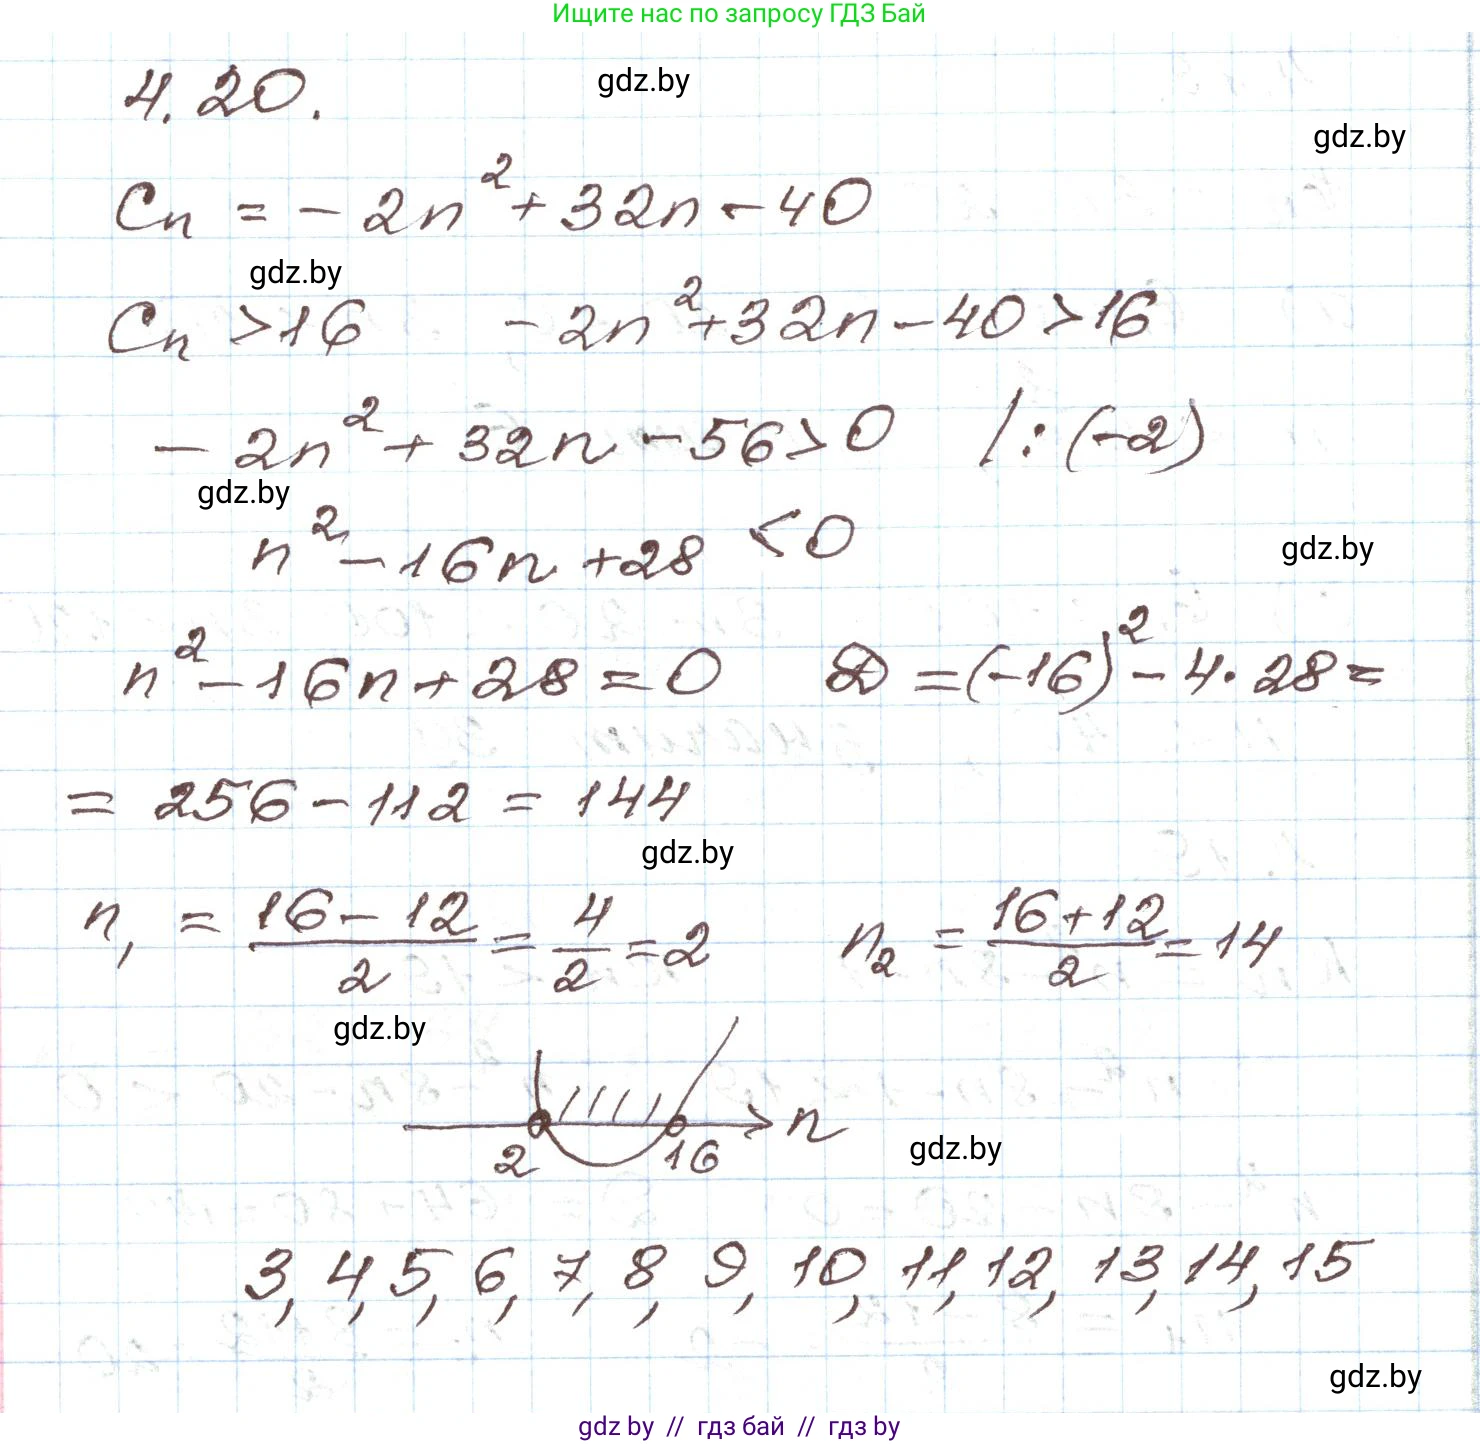 Ищите нас по запросу ГДЗ Бай
4.20.
gdz.by
gdz.by
Cₙ = -2n² + 32n - 40
gdz.by
Cₙ > 16 -2n² + 32n - 40 > 16
-2n² + 32n - 56 > 0 /:(-2)
gdz.by
n² - 16n + 28 < 0
gdz.by
n² - 16n + 28 = 0 D = (-16)² - 4·28 =
= 256 - 112 = 144
gdz.by
n₁ = (16 - 12)/2 = 4/2 = 2 n₂ = (16 + 12)/2 = 14
gdz.by
n
2 16
gdz.by
3, 4, 5, 6, 7, 8, 9, 10, 11, 12, 13, 14, 15
gdz.by
gdz by // гдз бай // гдз by